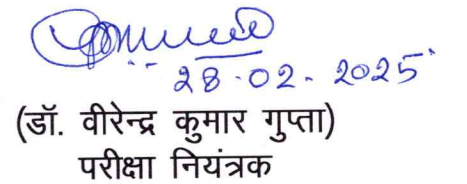 28.02.2025
(डॉ. वीरेन्द्र कुमार गुप्ता)
परीक्षा नियंत्रक